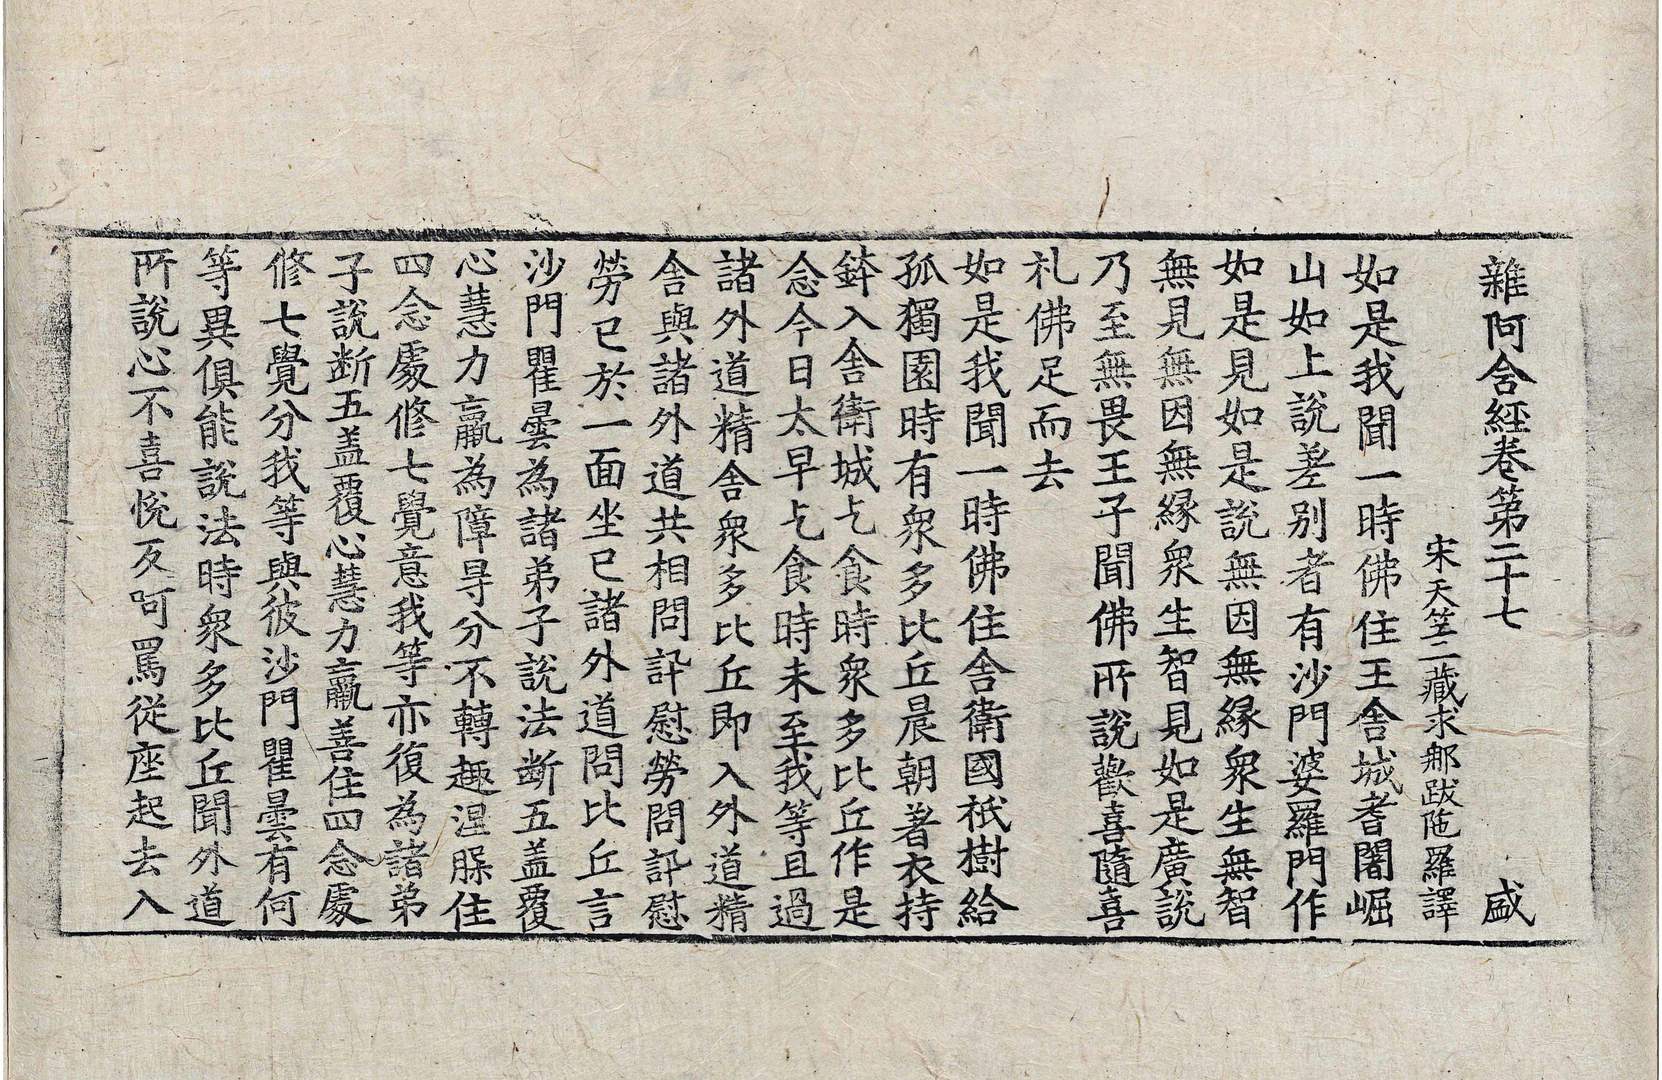 雜阿含經卷第二十七 盛
宋天竺三藏求郍跋陁羅譯
如是我聞一時佛住王舍城耆闍崛
山如上說差別者有沙門婆羅門作
如是見如是說無因無緣衆生無智
無見無因無緣衆生智見如是廣說
乃至無畏王子聞佛所說歡喜隨喜
礼佛足而去
如是我聞一時佛住舍衛國祇樹給
孤獨園時有衆多比丘晨朝著衣持
鉢入舍衛城乞食時衆多比丘作是
念今日太早乞食時未至我等且過
諸外道精舍衆多比丘即入外道精
舍與諸外道共相問訊慰勞問訊慰
勞已於一面坐已諸外道問比丘言
沙門瞿曇為諸弟子說法断五盖覆
心慧力羸為障㝵分不轉趣涅槃住
四念處修七覺意我等亦復為諸弟
子說断五盖覆心慧力羸善住四念處
修七覺分我等與彼沙門瞿曇有何
等異俱能說法時衆多比丘聞外道
所說心不喜悅反呵罵從座起去入